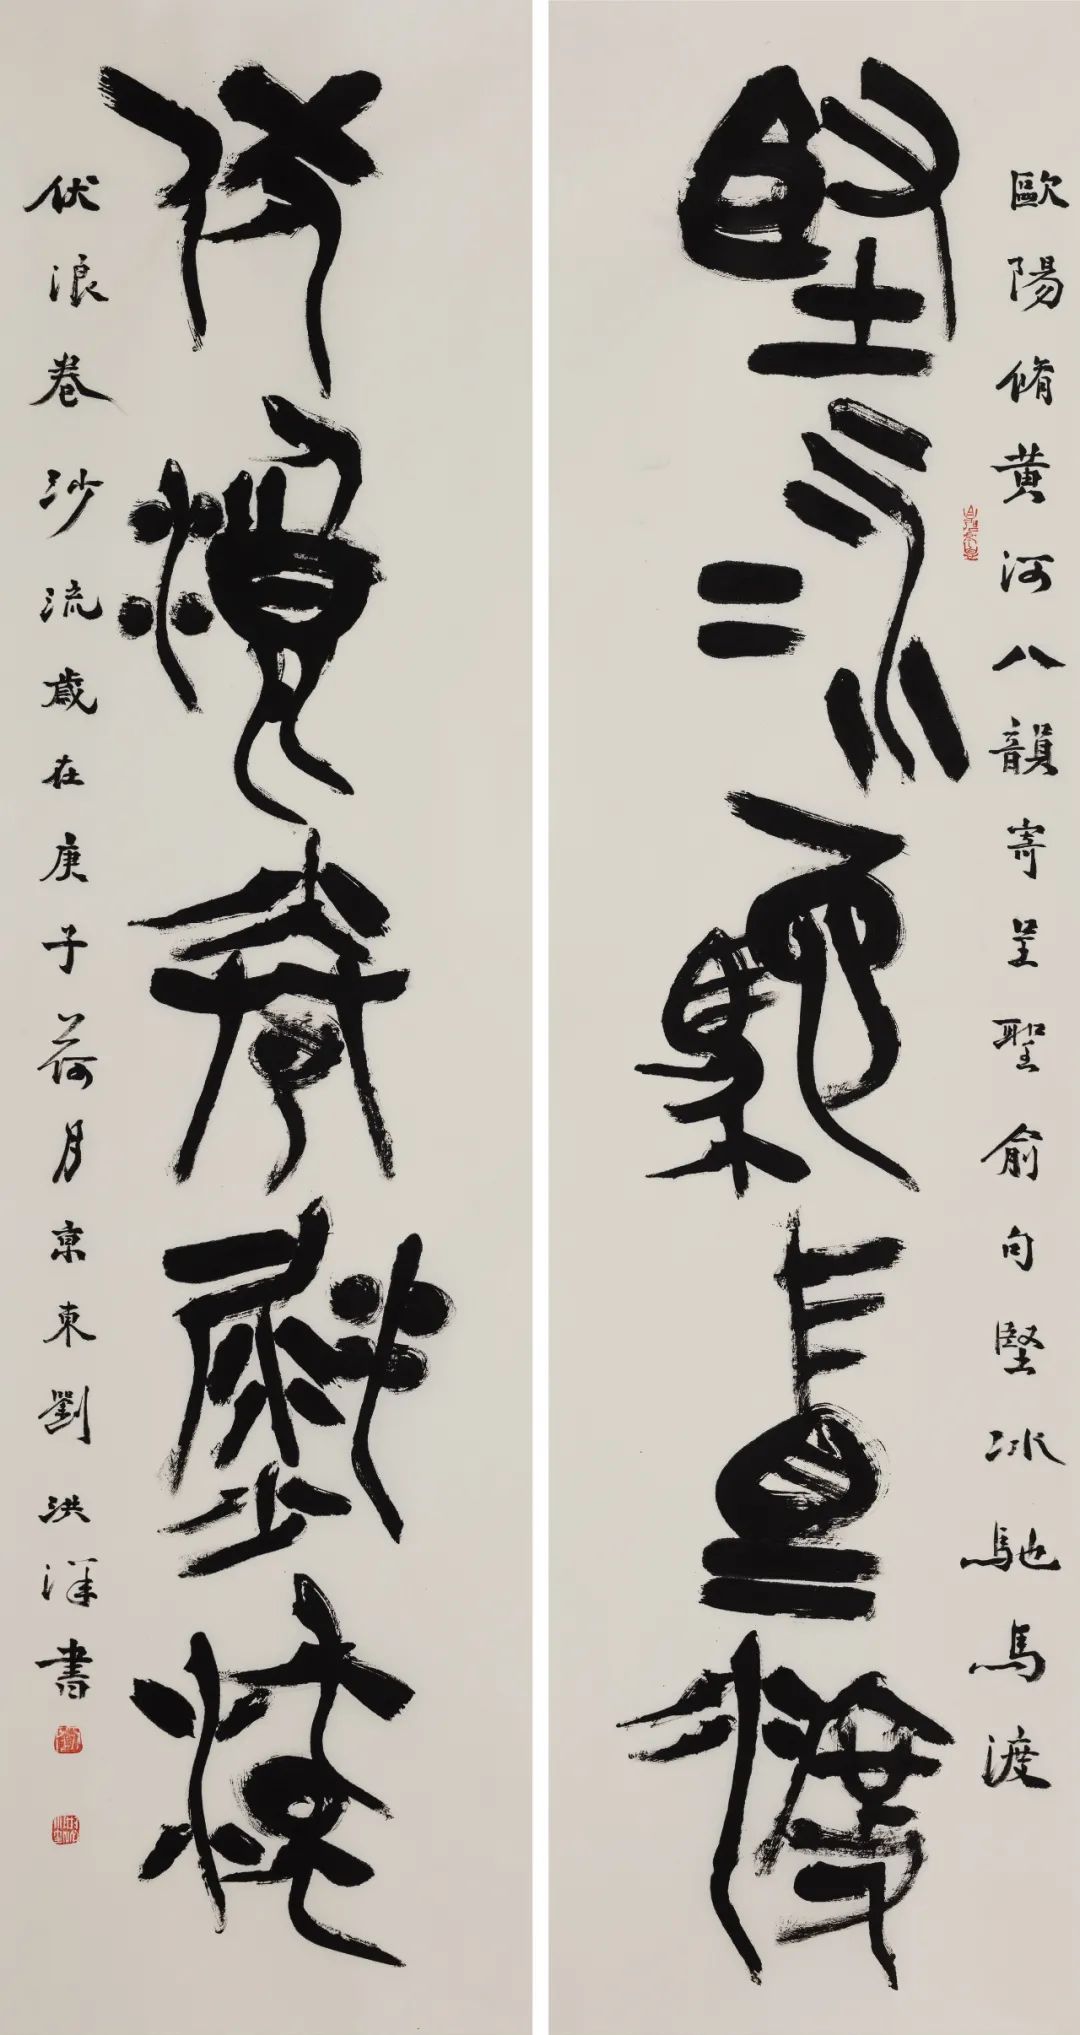 歐陽脩黄河八韻寄呈聖俞句堅冰馳馬渡
堅冰馳馬渡
伏浪卷沙流
伏浪卷沙流歲在庚子荷月京東劉洪洋書